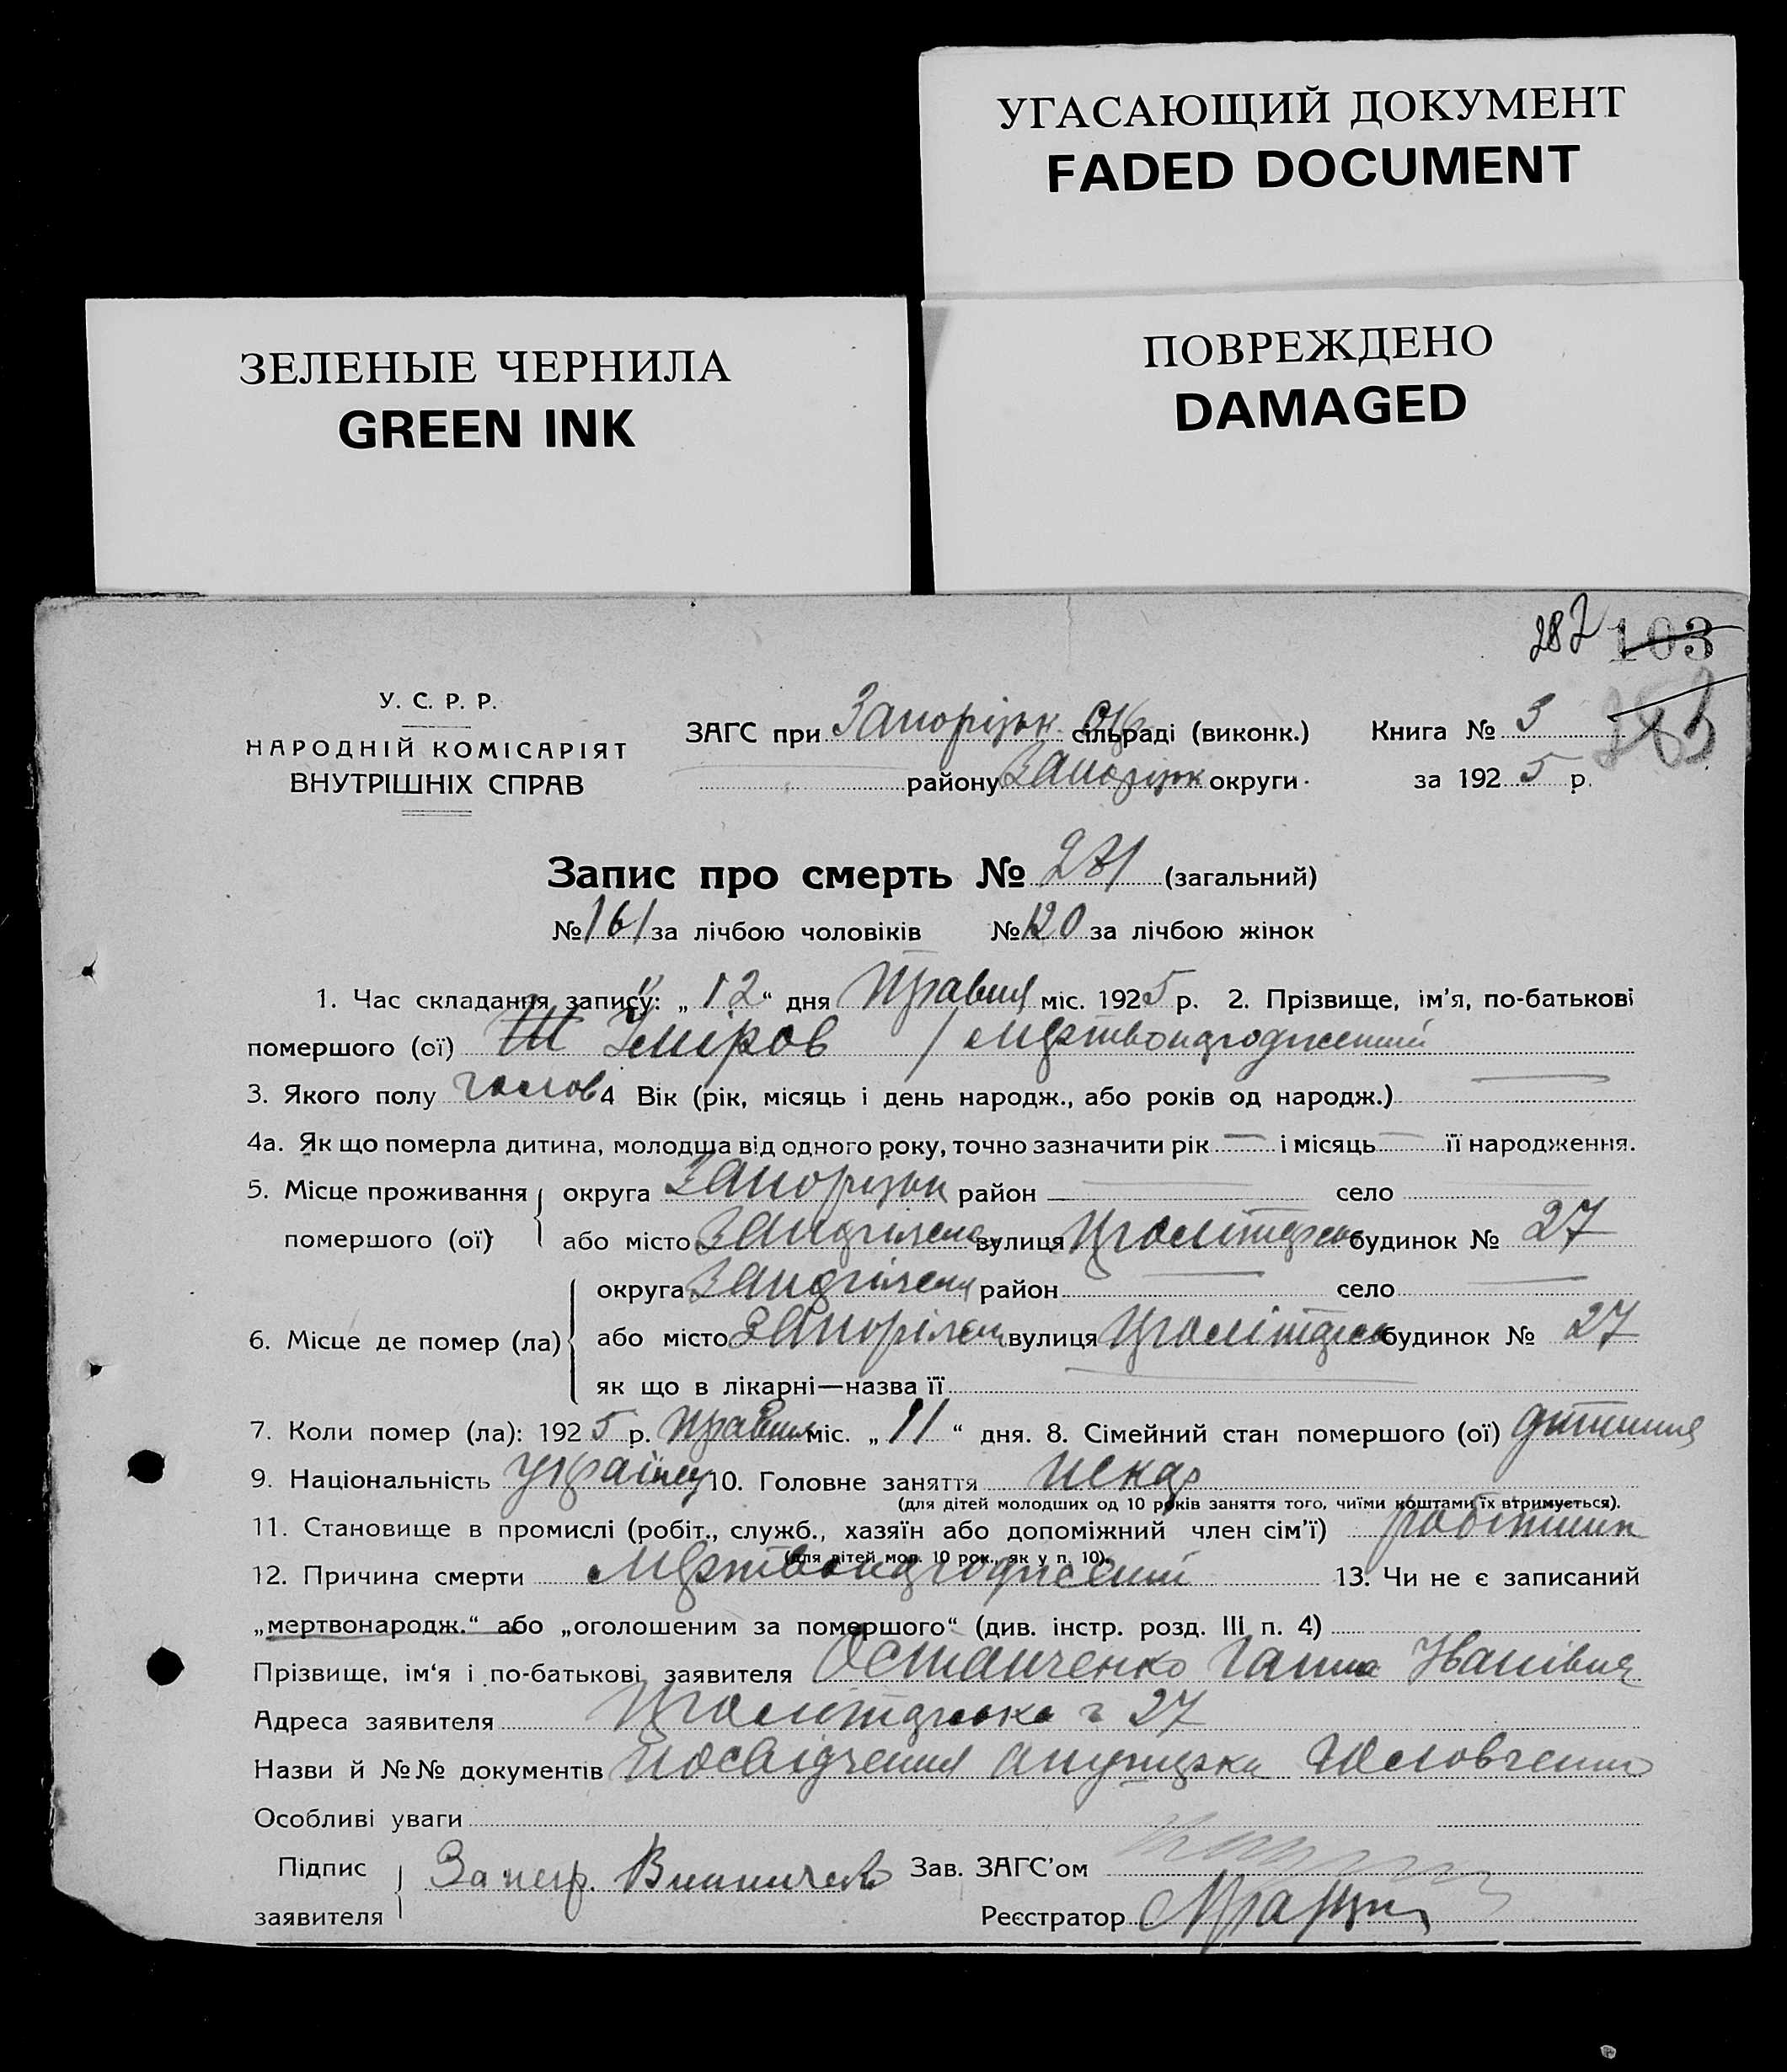 УГАСАЮЩИЙ ДОКУМЕНТ
FADED DOCUMENT
ЗЕЛЕНЫЕ ЧЕРНИЛА
GREEN INK
ПОВРЕЖДЕНО
DAMAGED
282 103
283
У. С. Р. Р.
НАРОДНІЙ КОМІСАРІЯТ
ВНУТРІШНІХ СПРАВ
ЗАГС при Запорізьк. Окр. сільраді (виконк.) Книга № 3
району Запорізьк округи за 1925 р.
Запис про смерть № 281 (загальний)
№ 161 за лічбою чоловіків № 120 за лічбою жінок
1. Час складання запису: „12“ дня Травня міс. 1925 р. 2. Прізвище, ім'я, по-батькові
помершого (ої) / мертвонароджений
3. Якого полу чолов 4 Вік (рік, місяць і день народж., або років од народж.)
4а. Як що померла дитина, молодша від одного року, точно зазначити рік — і місяць — її народження.
5. Місце проживання помершого (ої) округа Запорізьк район — село
або місто вулиця будинок № 27
6. Місце де помер (ла) округа район — село —
або місто вулиця будинок № 27
як що в лікарні—назва її
7. Коли помер (ла): 1925 р. травня міс. „11“ дня. 8. Сімейний стан помершого (ої) дитина
9. Національність 10. Головне заняття пекар
(для дітей молодших од 10 років заняття того, чиїми коштами їх втримується).
11. Становище в промислі (робіт., служб., хазяїн або допоміжний член сім'ї) робітник
(для дітей мол. 10 рок., як у п. 10).
12. Причина смерти мертвонароджений 13. Чи не є записаний
„мертвонародж.“ або „оголошеним за помершого“ (див. інстр. розд. III п. 4)
Прізвище, ім'я і по-батькові заявителя Остапченко Ганна Іванівна
Адреса заявителя 27
Назви й №№ документів Посвідчення акушерки
Особливі уваги
Підпис заявителя За негр. Зав. ЗАГС'ом
Реєстратор